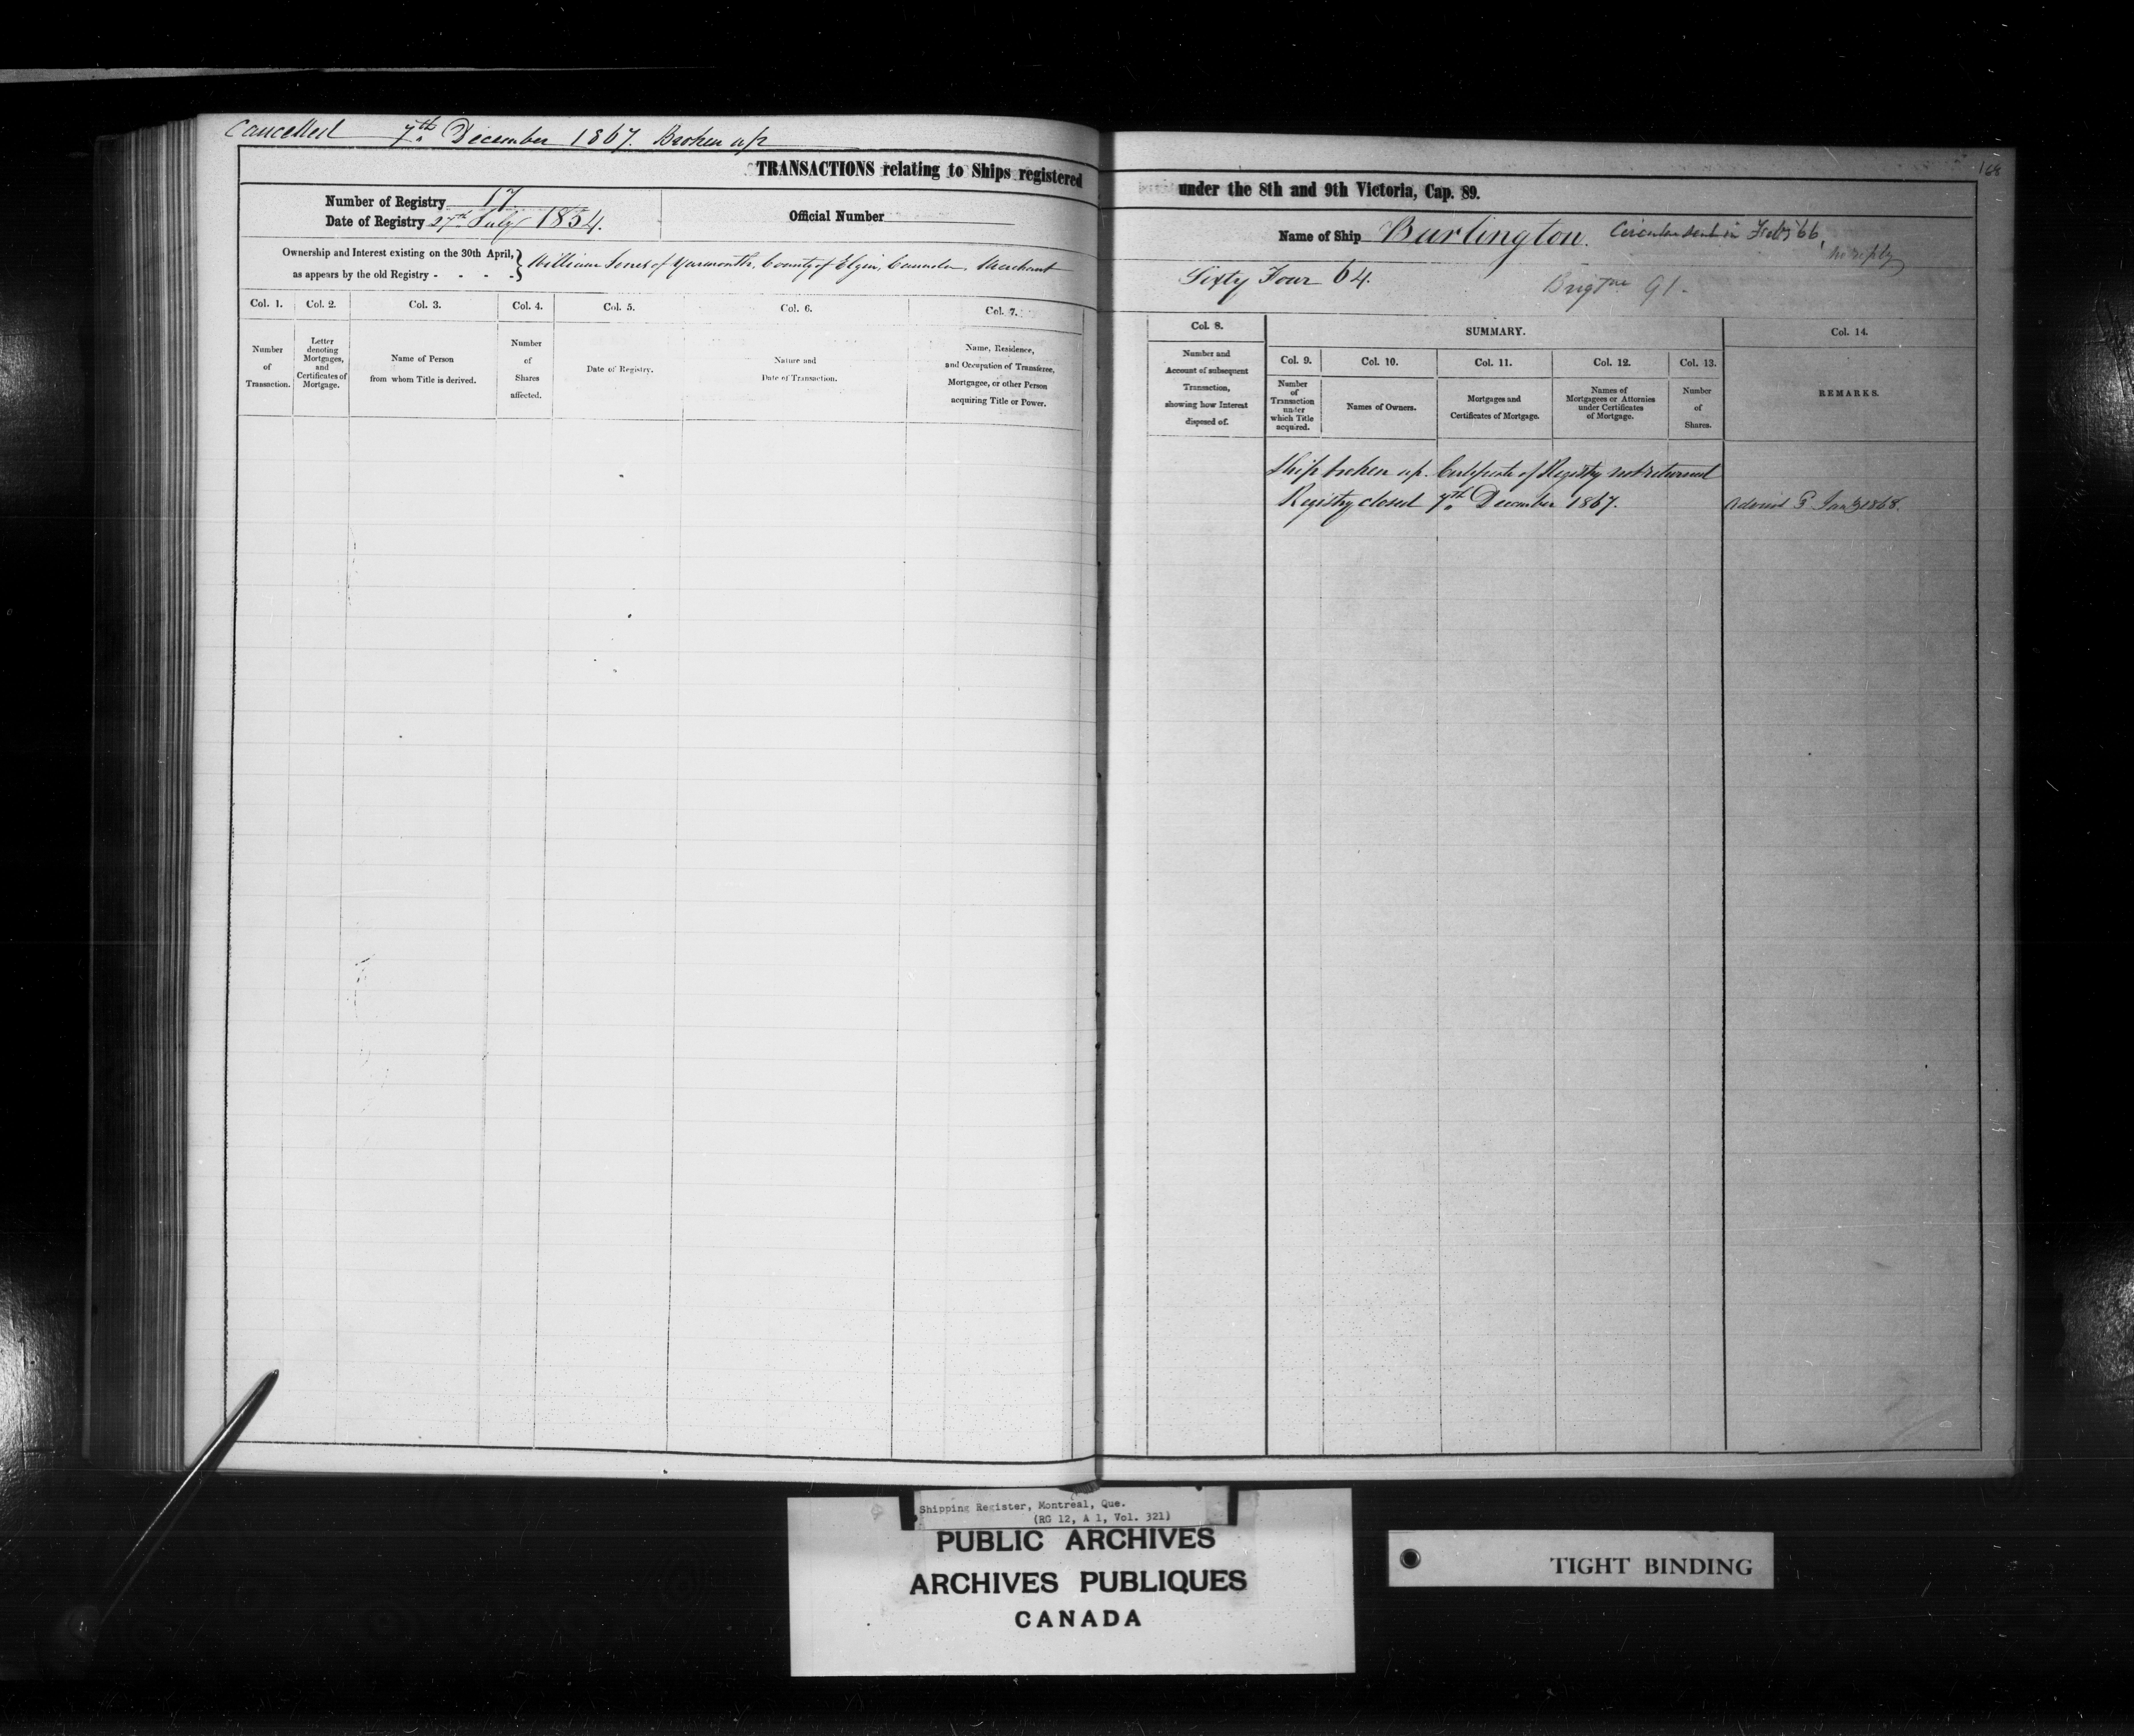 Cancelled 7th December 1867. Broken up
168
TRANSACTIONS relating to Ships registered under the 8th and 9th Victoria, Cap. 89.
Number of Registry 17
Date of Registry 27th July 1854.
Official Number
Name of Ship Burlington. Circular sent in Feby 66,
no reply
Ownership and Interest existing on the 30th April,
as appears by the old Registry - - - -
William of Yarmouth, County of Elgin, Canada, Merchant
Sixty Four 64.
Brigtne 91.
Col. 1. Col. 2. Col. 3. Col. 4. Col. 5. Col. 6. Col. 7.
Number of Transaction.
Letter denoting Mortgages, and Certificates of Mortgage.
Name of Person from whom Title is derived.
Number of Shares affected.
Date of Registry.
Nature and Date of Transaction.
Name, Residence, and Occupation of Transferee, Mortgagee, or other Person acquiring Title or Power.
Col. 8. SUMMARY. Col. 14.
Col. 9. Col. 10. Col. 11. Col. 12. Col. 13.
Number and Account of subsequent Transaction, showing how Interest disposed of.
Number of Transaction under which Title acquired.
Names of Owners.
Mortgages and Certificates of Mortgage.
Names of Mortgagees or Attornies under Certificates of Mortgage.
Number of Shares.
REMARKS.
Ship broken up. Certificate of Registry not returned
Registry closed 7th December 1867.
Advised 3 Jany 1868.
Shipping Register, Montreal, Que.
(RG 12, A 1, Vol. 321)
PUBLIC ARCHIVES
ARCHIVES PUBLIQUES
CANADA
TIGHT BINDING